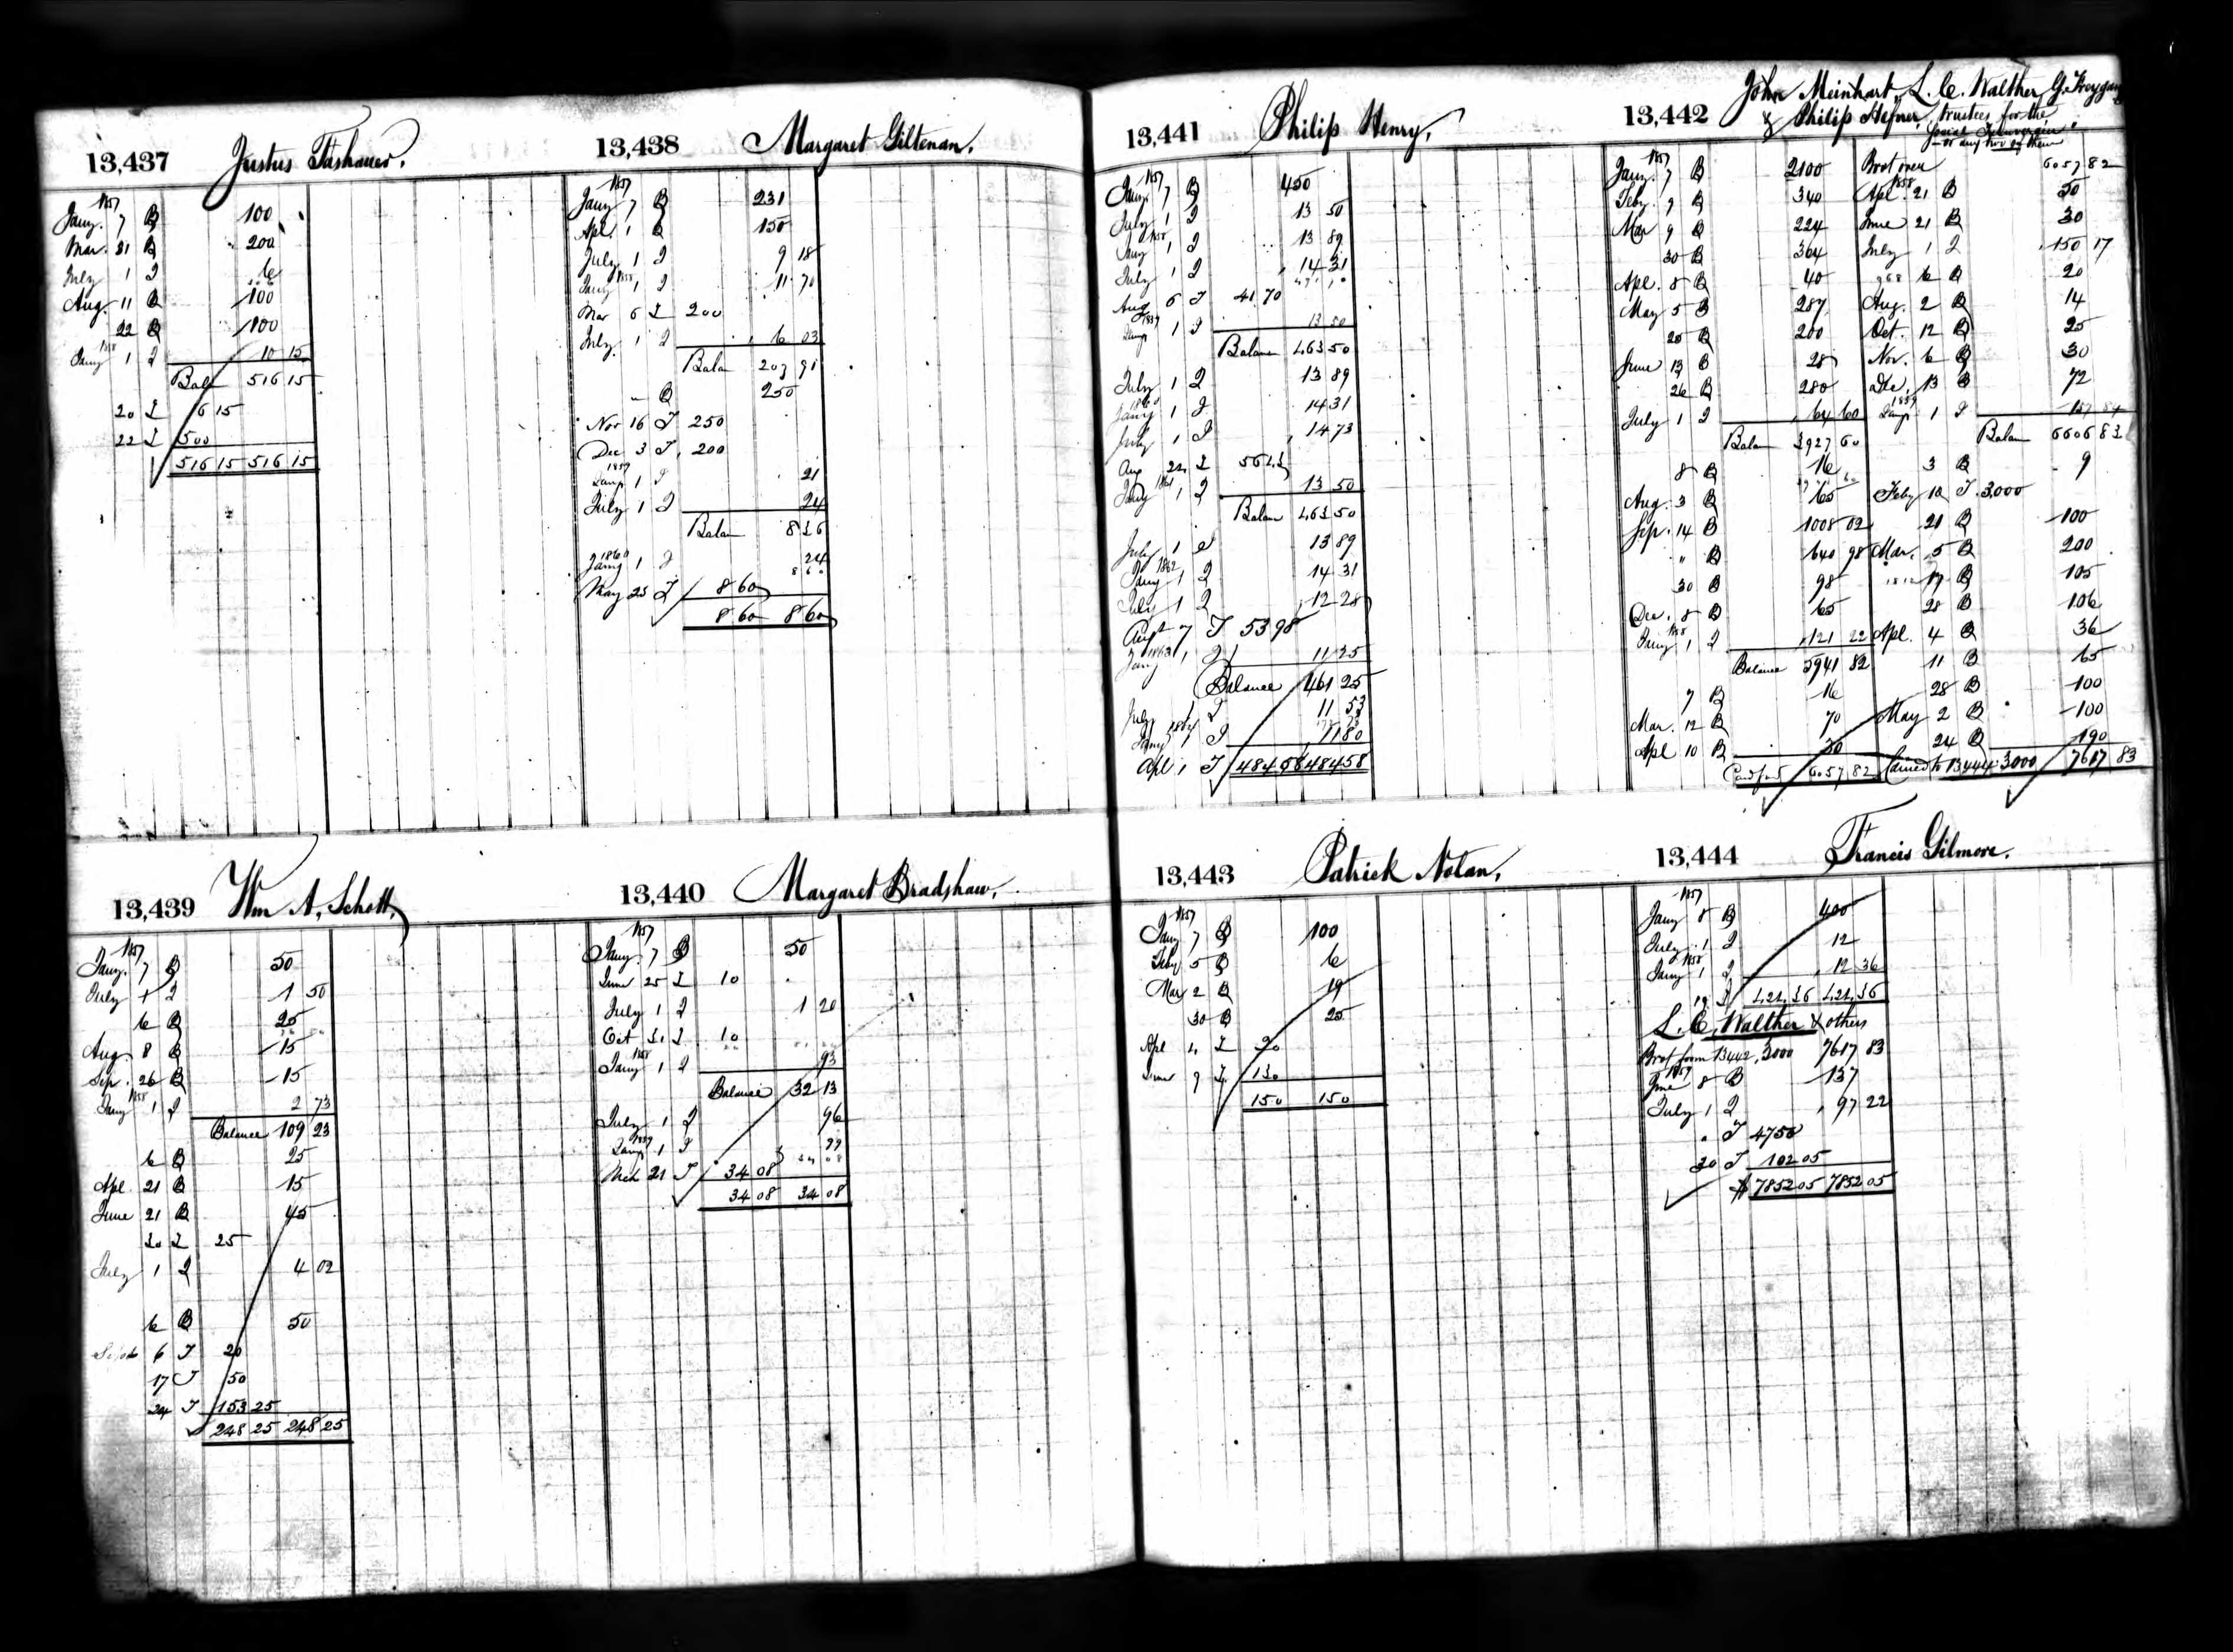 13,437 Justus Tashauer.
1857
Jany. 7 B 100
Mar. 21 B 200
July 1 I 6
Aug. 11 B 100
22 B 100
1858
Jany 1 I 10 15
Bala 516 15
20 I 16 15
22 I 500
516 15 516 15
13,438 Margaret Giltenan.
1857
Jany 7 B 231
Apl. 1 B 150
July 1 I 9 18
1858
Jany 1 I 11 70
Mar 6 I 200
July 1 I 6 03
Balan 207 91
" B 250
Nov 16 I 250
Dec 3 I 200
1859
Jany 1 I 21
July 1 I 24
Balan 8 36
1860
Jany 1 I 24
May 23 I 8 60
8 60 8 60
13,439 Wm A. Schott,
1857
Jany. 7 B 50
July 1 I 1 50
6 B 25
Aug. 8 B 15
Sep. 26 B 15
1858
Jany 1 I 2 73
Balance 109 23
6 B 25
Apl. 21 B 15
June 21 B 45
30 I 25
July 1 I 4 02
6 B 50
Sept 6 I 20
17 I 50
24 I 153 25
248 25 248 25
13,440 Margaret Bradshaw,
1857
Jany. 7 B 50
June 25 I 10
July 1 I 1 20
Oct 31 I 10
1858
Jany 1 I 93
Balance 32 13
July 1 I 96
1859
Jany 1 I 99
Mch 21 I 34 08
34 08 34 08
13,441 Philip Henry,
1857
Jany. 7 B 450
July 1 I 13 50
1858
Jany 1 I 13 89
July 1 I 14 31
Aug 6 I 41 70
1859
Jany 1 I 13 50
Balance 463 50
July 1 I 13 89
1860
Jany 1 I 14 31
July 1 I 14 73
Aug 22 I 56 43
1861
Jany 1 I 13 50
Balan 463 50
July 1 I 13 89
1862
Jany 1 I 14 31
July 1 I 12 28
Augt 7 I 53 98
1863
Jany 1 I 11 25
Balance 461 25
July 1 I 11 53
1864
Jany 1 I 11 80
Apl 1 I 484 58 484 58
13,442 John Meinhart, L. C. Walther, G.
& Philip Hefner, trustees for the
or any two of them
1857
Jany. 7 B 2100
Feby. 9 B 340
Mar 9 B 224
30 B 364
Apl. 8 B 40
May 5 B 287
25 B 200
June 13 B 28
26 B 280
July 1 I 64 60
Balan 3927 60
8 B 16
Aug. 3 B 65
Sep. 14 B 1008 02
" B 640 98
30 B 98
Dec. 8 B 65
1858
Jany 1 I 121 22
Balance 5941 82
7 B 16
Mar. 12 B 70
Apl 10 B 30
Card ford 6057 82
Brot over 6057 82
1858
Apl. 21 B 50
June 21 B 30
July 1 I 150 17
6 B 20
Aug. 2 B 14
Oct. 12 B 25
Nov. 6 B 30
Dec. 13 B 72
1859
Jany 1 I 157 84
Balan 6606 83
3 B 9
Feby 10 I 3,000
21 B 100
Mar. 5 B 200
17 B 105
28 B 106
Apl. 4 B 36
11 B 65
28 B 100
May 2 B 100
24 B 190
Carried to 13444 3000 7617 83
13,443 Patrick Nolan,
1857
Jany 7 B 100
Feby 5 B 6
Mar 2 B 19
30 B 25
Apl 4 I 20
June 9 I 130
150 150
13,444 Francis Gilmore.
1857
Jany 8 B 400
July 1 I 12
1858
Jany 1 I 12 36
19 I 424.36 424.36
L. C. Walther & others
Brot from 13442, 3000 7617 83
1859
June 8 B 137
July 1 I 97 22
" I 4750
30 I 102 05
$ 7852 05 7852 05